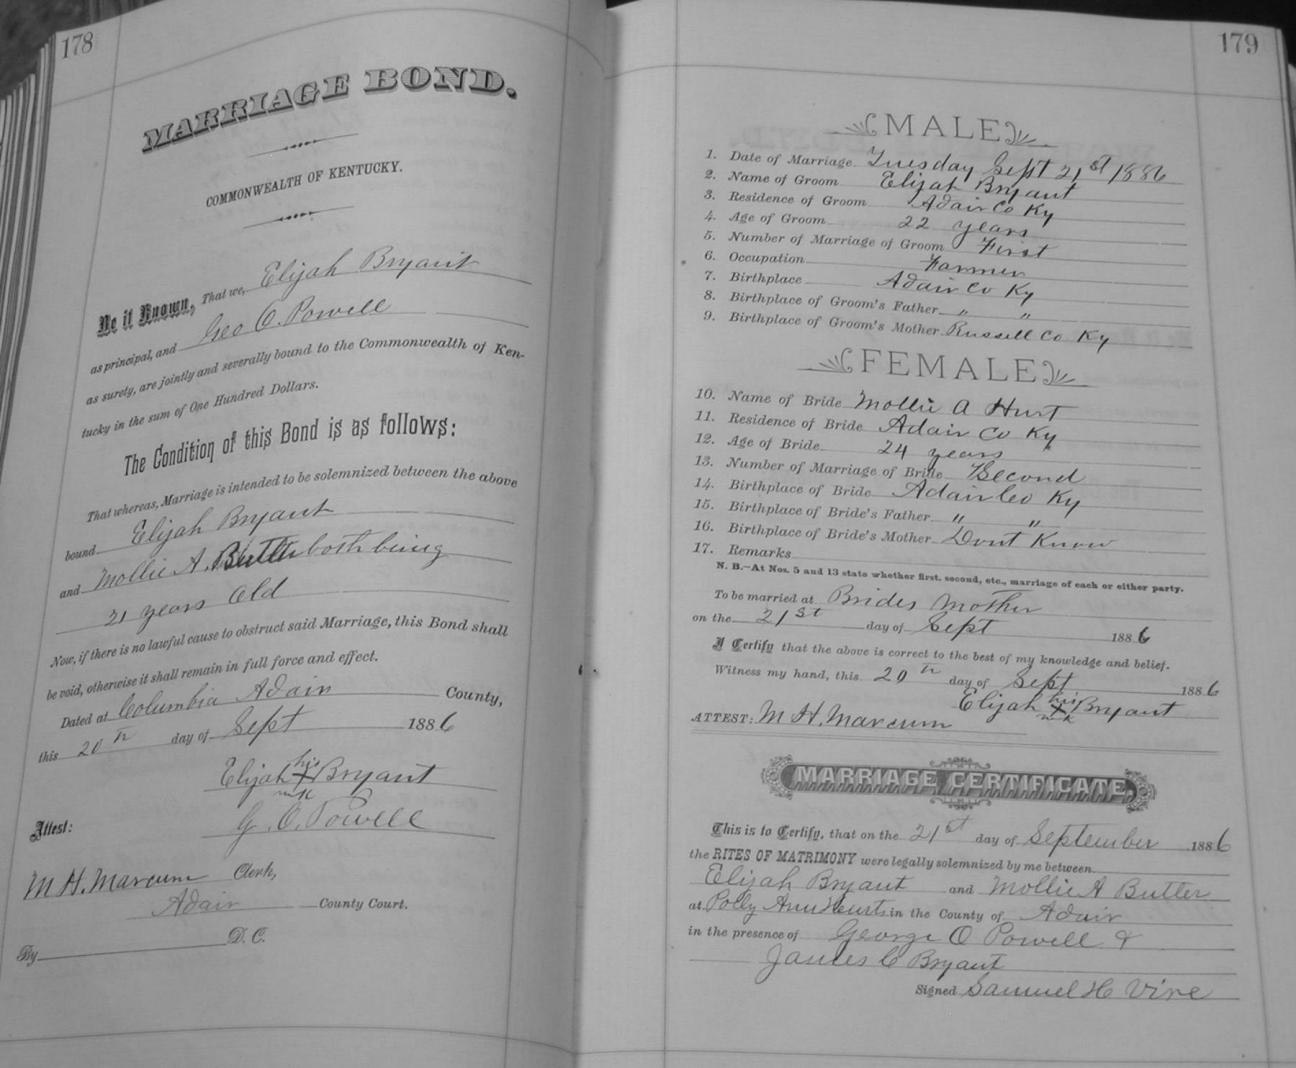 178
MARRIAGE BOND.
COMMONWEALTH OF KENTUCKY.
Be it Known, That we, Elijah Bryant
as principal, and Geo O. Powell
as surety, are jointly and severally bound to the Commonwealth of Ken-
tucky in the sum of One Hundred Dollars.
The Condition of this Bond is as follows:
That whereas, Marriage is intended to be solemnized between the above
bound Elijah Bryant
and Mollie A. Butler both being
21 years old
Now, if there is no lawful cause to obstruct said Marriage, this Bond shall
be void, otherwise it shall remain in full force and effect.
Dated at Columbia Adair County,
this 20th day of Sept 1886
Elijah his X mk Bryant
G. O. Powell
Attest:
M H. Marcum Clerk,
Adair County Court.
By D. C.
179
MALE
1. Date of Marriage Tuesday Sept 21st 1886
2. Name of Groom Elijah Bryant
3. Residence of Groom Adair Co Ky
4. Age of Groom 22 years
5. Number of Marriage of Groom First
6. Occupation Farmer
7. Birthplace Adair Co Ky
8. Birthplace of Groom's Father " "
9. Birthplace of Groom's Mother Russell Co Ky
FEMALE
10. Name of Bride Mollie A Hurt
11. Residence of Bride Adair Co Ky
12. Age of Bride 24 years
13. Number of Marriage of Bride Second
14. Birthplace of Bride Adair Co Ky
15. Birthplace of Bride's Father " "
16. Birthplace of Bride's Mother Dont Know
17. Remarks
N. B.—At Nos. 5 and 13 state whether first, second, etc., marriage of each or either party.
To be married at Brides Mother
on the 21st day of Sept 1886
I Certify that the above is correct to the best of my knowledge and belief.
Witness my hand, this 20th day of Sept 1886
Elijah his X mk Bryant
ATTEST: M H. Marcum
MARRIAGE CERTIFICATE.
This is to Certify, that on the 21st day of September 1886
the RITES OF MATRIMONY were legally solemnized by me between
Elijah Bryant and Mollie A Butler
at Polly Ann Hurts in the County of Adair
in the presence of George O Powell &
James C Bryant
Signed Samuel H Vire